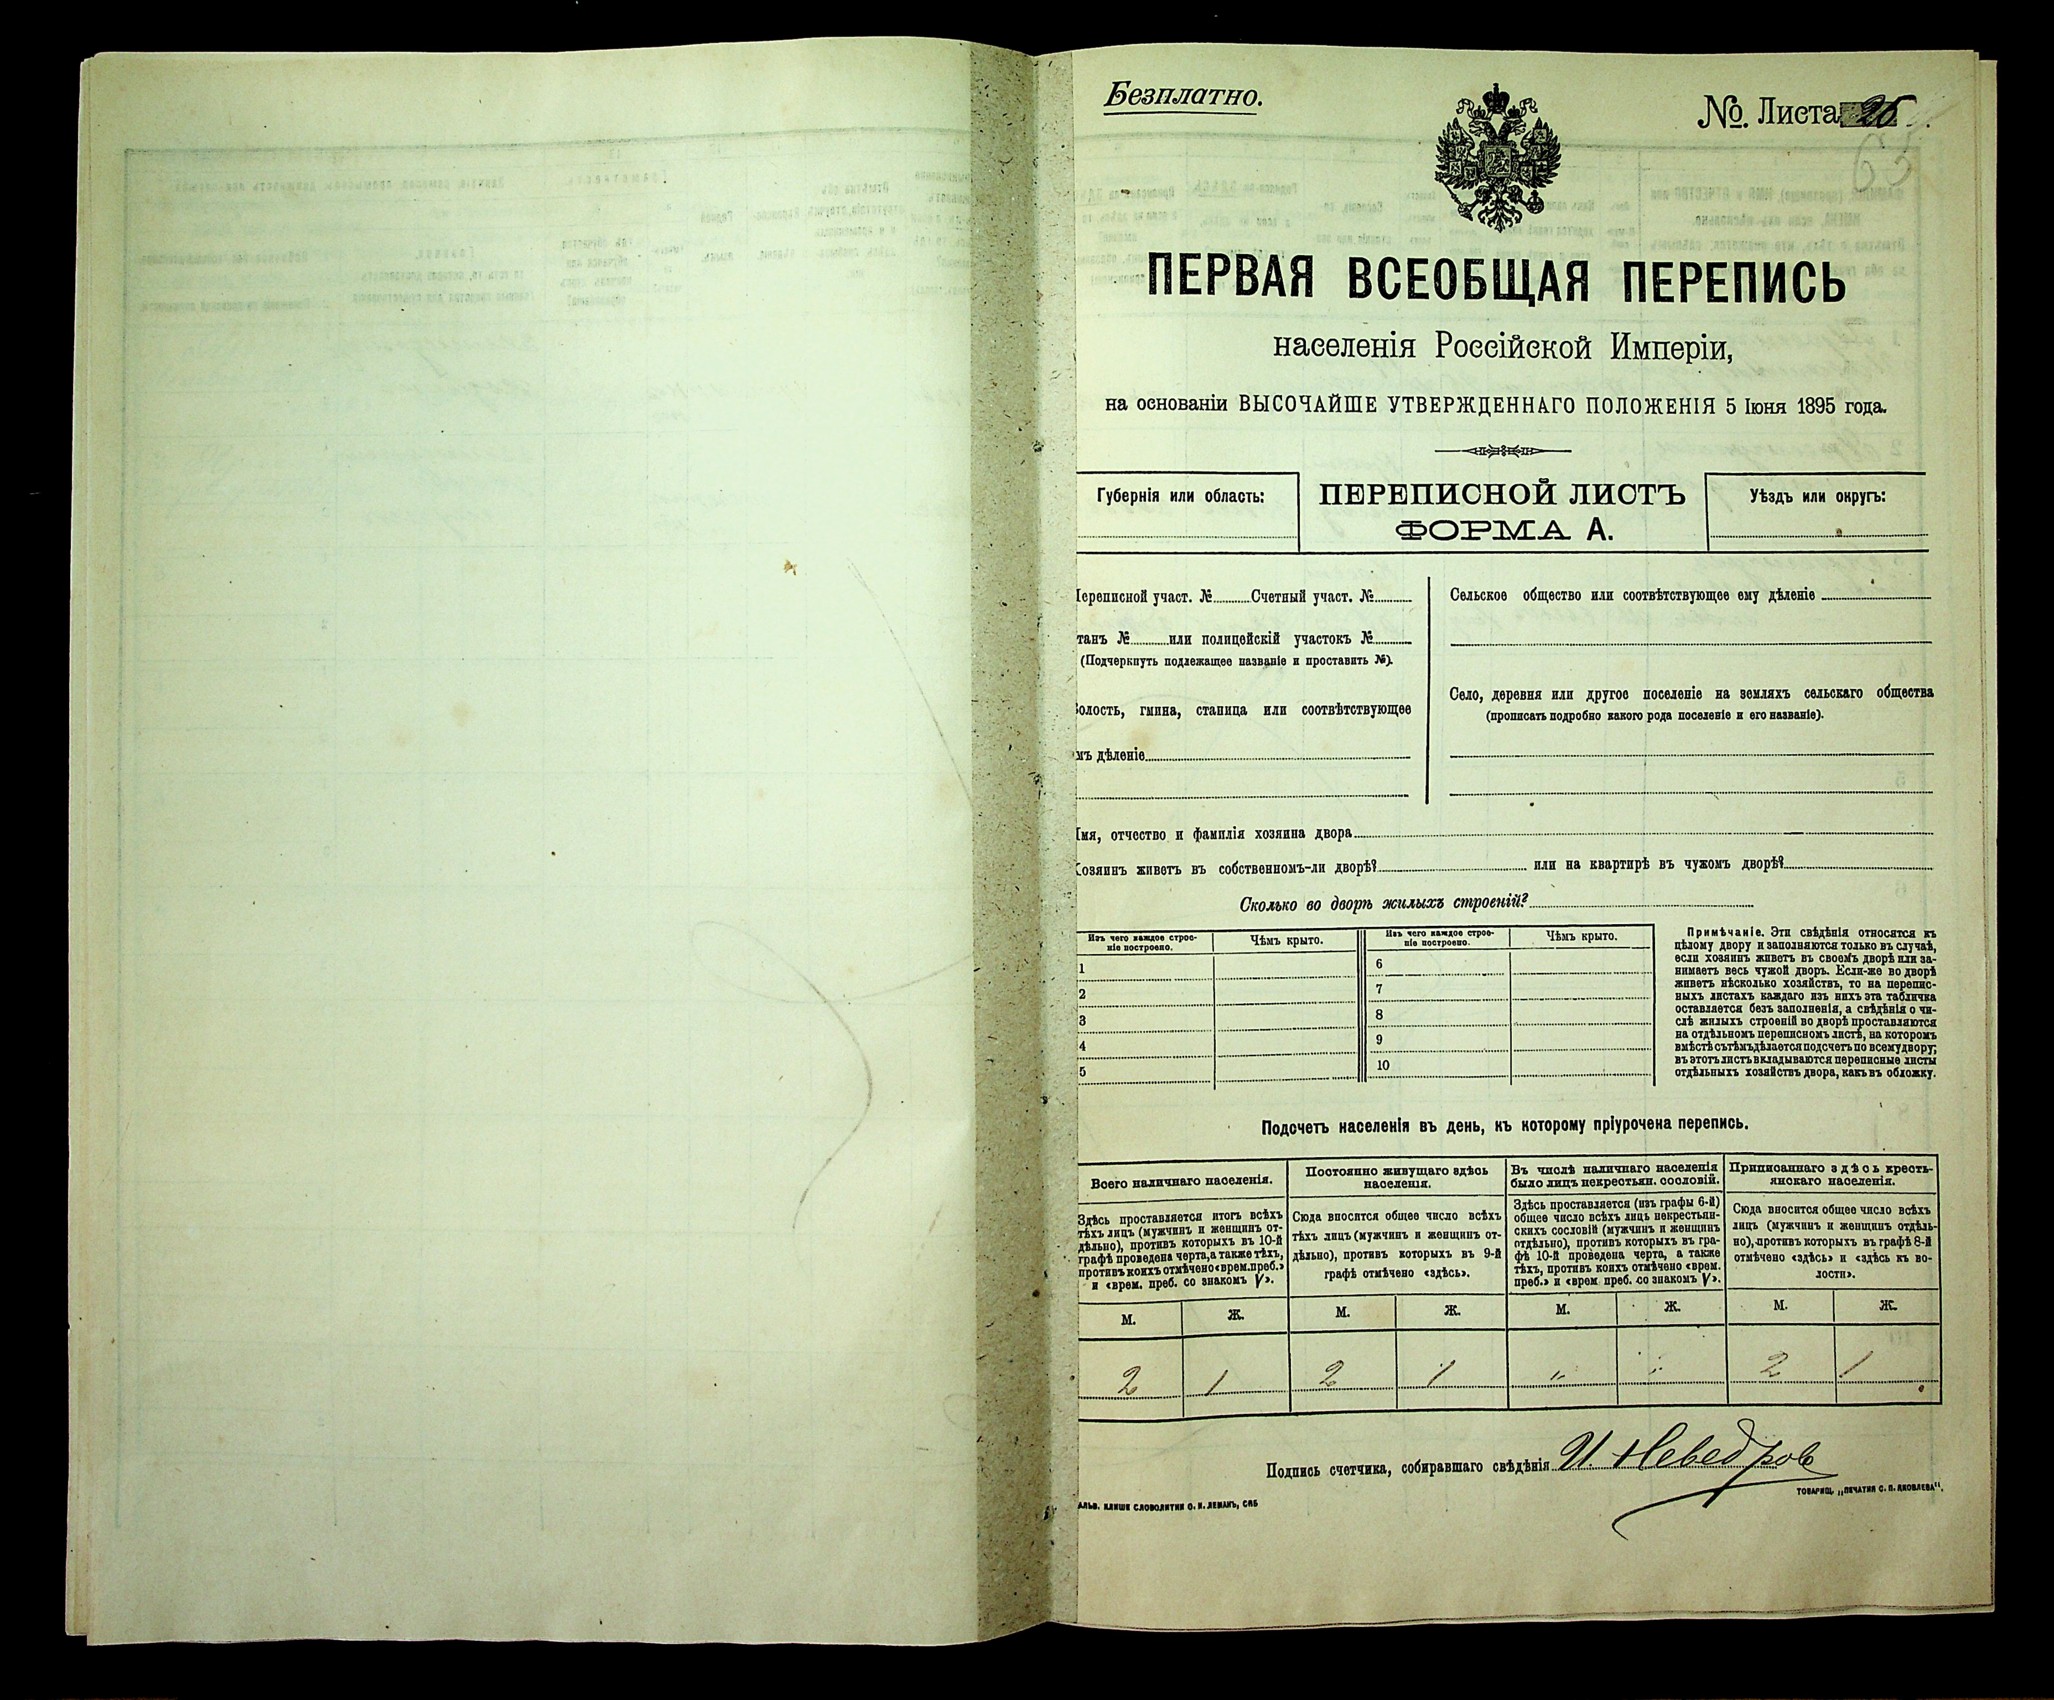 Безплатно.
№. Листа
63
ПЕРВАЯ ВСЕОБЩАЯ ПЕРЕПИСЬ
населенія Россійской Имперіи,
на основаніи ВЫСОЧАЙШЕ УТВЕРЖДЕННАГО ПОЛОЖЕНІЯ 5 Іюня 1895 года.
Губернія или область:
ПЕРЕПИСНОЙ ЛИСТЪ
ФОРМА А.
Уѣздъ или округъ:
Переписной участ. № Счетный участ. №
танъ № или полицейскій участокъ №
(Подчеркнуть подлежащее названіе и проставить №).
олость, гмина, станица или соотвѣтствующее
мъ дѣленіе
Сельское общество или соотвѣтствующее ему дѣленіе
Село, деревня или другое поселеніе на земляхъ сельскаго общества
(прописать подробно какого рода поселеніе и его названіе).
Имя, отчество и фамилія хозяина двора
Хозяинъ живетъ въ собственномъ-ли дворѣ? или на квартирѣ въ чужомъ дворѣ?
Сколько во дворѣ жилыхъ строеній?
Изъ чего каждое строе-
ніе построено.
Чѣмъ крыто.
Изъ чего каждое строе-
ніе построено.
Чѣмъ крыто.
1
2
3
4
5
6
7
8
9
10
Примѣчаніе. Эти свѣдѣнія относятся къ
цѣлому двору и заполняются только въ случаѣ,
если хозяинъ живетъ въ своемъ дворѣ или за-
нимаетъ весь чужой дворъ. Если-же во дворѣ
живетъ нѣсколько хозяйствъ, то на перепис-
ныхъ листахъ каждаго изъ нихъ эта табличка
оставляется безъ заполненія, а свѣдѣнія о чи-
слѣ жилыхъ строеній во дворѣ проставляются
на отдѣльномъ переписномъ листѣ, на которомъ
вмѣстѣ съ тѣмъ дѣлается подсчетъ по всему двору;
въ этотъ листъ вкладываются переписные листы
отдѣльныхъ хозяйствъ двора, какъ въ обложку.
Подсчетъ населенія въ день, къ которому пріурочена перепись.
Всего наличнаго населенія.
Здѣсь проставляется итогъ всѣхъ
тѣхъ лицъ (мужчинъ и женщинъ от-
дѣльно), противъ которыхъ въ 10-й
графѣ проведена черта, а также тѣхъ,
противъ коихъ отмѣчено «врем. преб.»
и «врем. преб. со знакомъ V».
Постоянно живущаго здѣсь
населенія.
Сюда вносится общее число всѣхъ
тѣхъ лицъ (мужчинъ и женщинъ от-
дѣльно), противъ которыхъ въ 9-й
графѣ отмѣчено «здѣсь».
Въ числѣ наличнаго населенія
было лицъ некрестьян. сословій.
Здѣсь проставляется (изъ графы 6-й)
общее число всѣхъ лицъ некрестьян-
скихъ сословій (мужчинъ и женщинъ
отдѣльно), противъ которыхъ въ гра-
фѣ 10-й проведена черта, а также
тѣхъ, противъ коихъ отмѣчено «врем.
преб.» и «врем преб. со знакомъ V».
Приписаннаго здѣсь кресть-
янскаго населенія.
Сюда вносится общее число всѣхъ
лицъ (мужчинъ и женщинъ отдѣль-
но), противъ которыхъ въ графѣ 8-й
отмѣчено «здѣсь» и «здѣсь къ во-
лости».
М. Ж. М. Ж. М. Ж. М. Ж.
2 1 2 1 " " 2 1
Подпись счетчика, собиравшаго свѣдѣнія И. Неведров
АЛЬВ. КЛИШЕ СЛОВОЛИТНИ О. И. ЛЕМАНЪ, СПБ
ТОВАРИЩ. „ПЕЧАТНЯ С. П. ЯКОВЛЕВА".